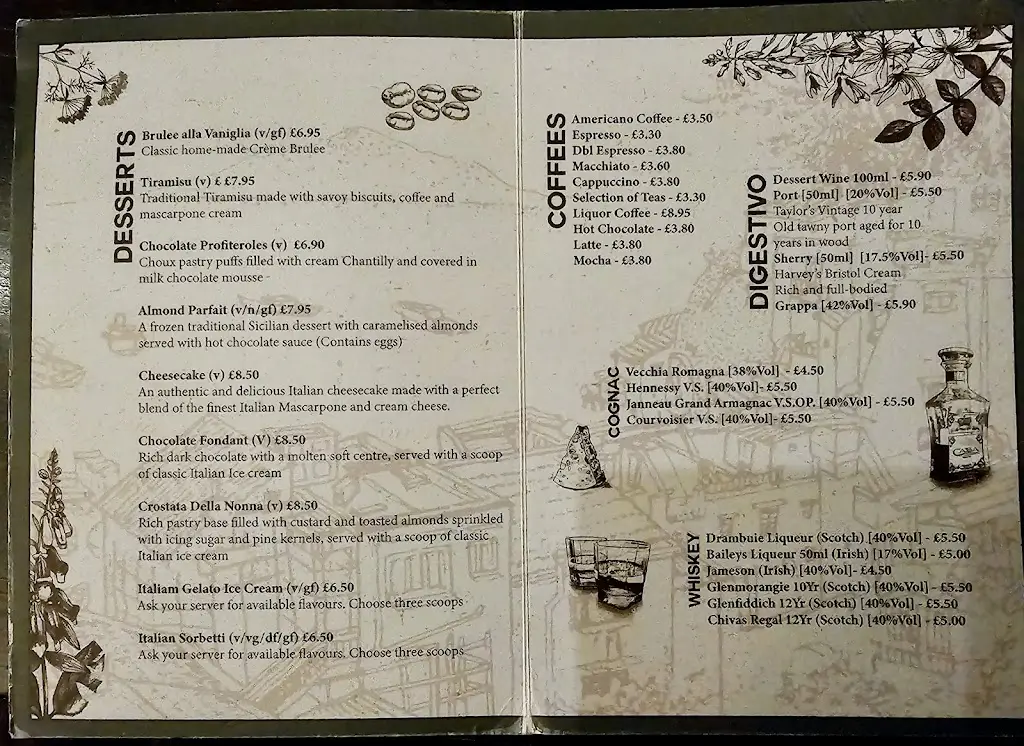 DESSERTS
Brulee alla Vaniglia (v/gf) £6.95
Classic home-made Crème Brulee
Tiramisu (v) £ £7.95
Traditional Tiramisu made with savoy biscuits, coffee and
mascarpone cream
Chocolate Profiteroles (v) £6.90
Choux pastry puffs filled with cream Chantilly and covered in
milk chocolate mousse
Almond Parfait (v/n/gf) £7.95
A frozen traditional Sicilian dessert with caramelised almonds
served with hot chocolate sauce (Contains eggs)
Cheesecake (v) £8.50
An authentic and delicious Italian cheesecake made with a perfect
blend of the finest Italian Mascarpone and cream cheese.
Chocolate Fondant (V) £8.50
Rich dark chocolate with a molten soft centre, served with a scoop
of classic Italian Ice cream
Crostata Della Nonna (v) £8.50
Rich pastry base filled with custard and toasted almonds sprinkled
with icing sugar and pine kernels, served with a scoop of classic
Italian ice cream
Italiam Gelato Ice Cream (v/gf) £6.50
Ask your server for available flavours. Choose three scoops
Italian Sorbetti (v/vg/df/gf) £6.50
Ask your server for available flavours. Choose three scoops
COFFEES
Americano Coffee - £3.50
Espresso - £3.30
Dbl Espresso - £3.80
Macchiato - £3.60
Cappuccino - £3.80
Selection of Teas - £3.30
Liquor Coffee - £8.95
Hot Chocolate - £3.80
Latte - £3.80
Mocha - £3.80
DIGESTIVO
Dessert Wine 100ml - £5.90
Port [50ml] [20%Vol] - £5.50
Taylor's Vintage 10 year
Old tawny port aged for 10
years in wood
Sherry [50ml] [17.5%Vol]- £5.50
Harvey's Bristol Cream
Rich and full-bodied
Grappa [42%Vol] - £5.90
COGNAC
Vecchia Romagna [38%Vol] - £4.50
Hennessy V.S. [40%Vol]- £5.50
Janneau Grand Armagnac V.S.OP. [40%Vol] - £5.50
Courvoisier V.S. [40%Vol]- £5.50
WHISKEY
Drambuie Liqueur (Scotch) [40%Vol] - £5.50
Baileys Liqueur 50ml (Irish) [17%Vol] - £5.00
Jameson (Irish) [40%Vol]- £4.50
Glenmorangie 10Yr (Scotch) [40%Vol] - £5.50
Glenfiddich 12Yr (Scotch) [40%Vol] - £5.50
Chivas Regal 12Yr (Scotch) [40%Vol] - £5.00